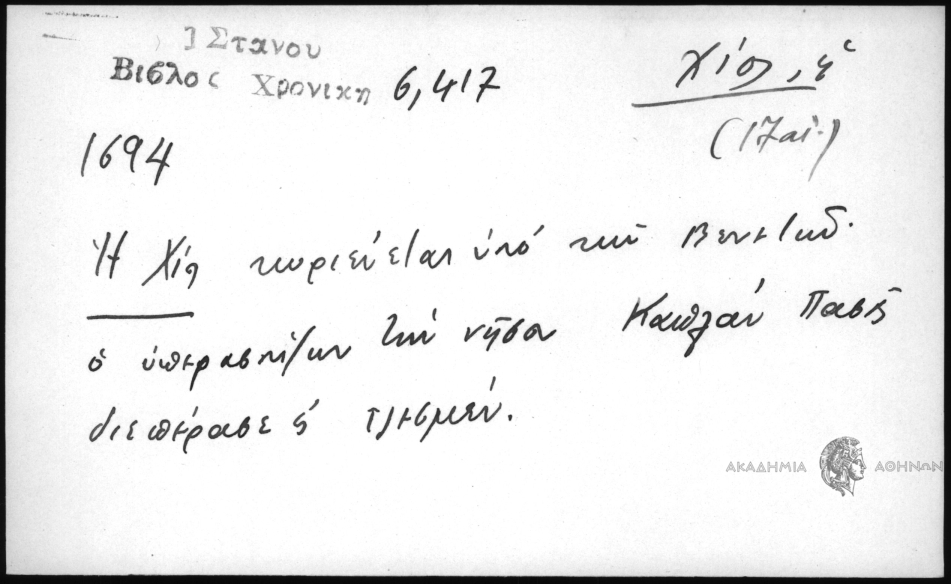 Ι Στανου
Βιβλος Χρονικη 6,417
Χίος, ἡ
(17 αἰ.)
1694
Ἡ Χίος κυριεύεται ὑπό τῶν Βενετῶν.
ὁ ὑπερασπίζων τήν νῆσον Καπλάν Πασᾶς
διεπέρασε εἰς Τσεσμέν.
ΑΚΑΔΗΜΙΑ ΑΘΗΝΩΝ